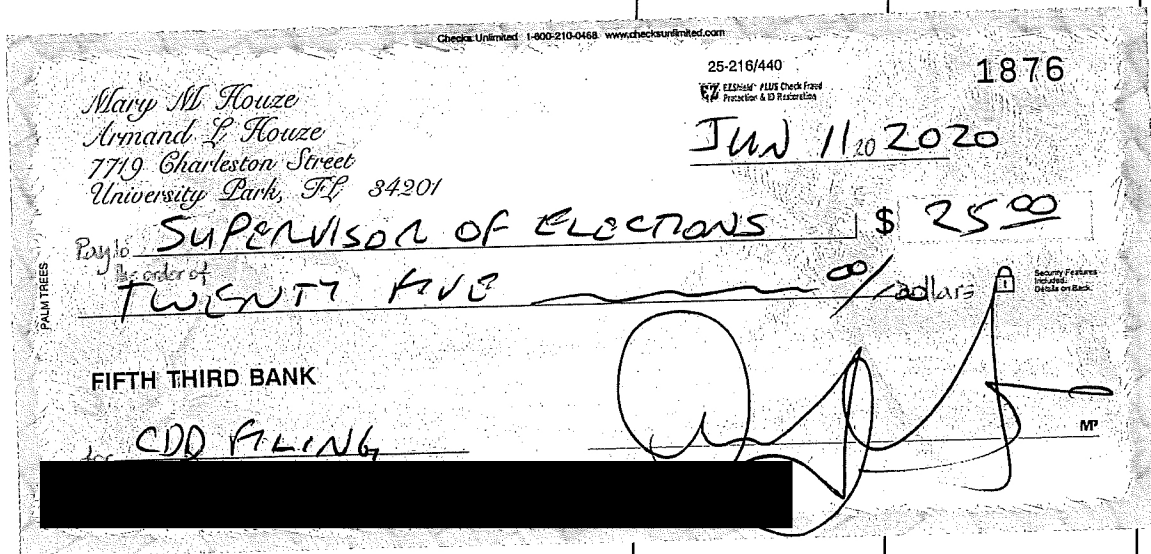 Checks Unlimited 1-800-210-0468 www.checksunlimited.com
25-216/440
1876
EZShield PLUS Check Fraud
Protection & ID Restoration
Mary M Houze
Armand L Houze
7719 Charleston Street
University Park, FL 34201
JUN 11 20 2020
Pay to the order of SUPERVISOR OF ELECTIONS $ 25 00
TWENTY FIVE 00/ dollars
Security Features
Included.
Details on Back.
PALM TREES
FIFTH THIRD BANK
for CDD FILING
MP